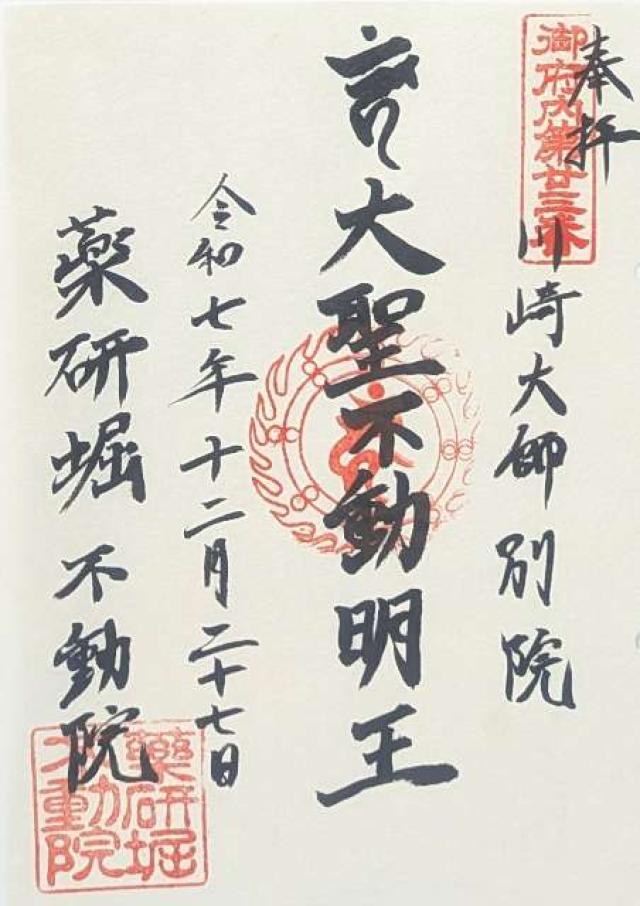 奉拝
御府内第廿三番
川崎大師別院
大聖不動明王
令和七年十二月二十七日
薬研堀不動院
薬研堀
不動院